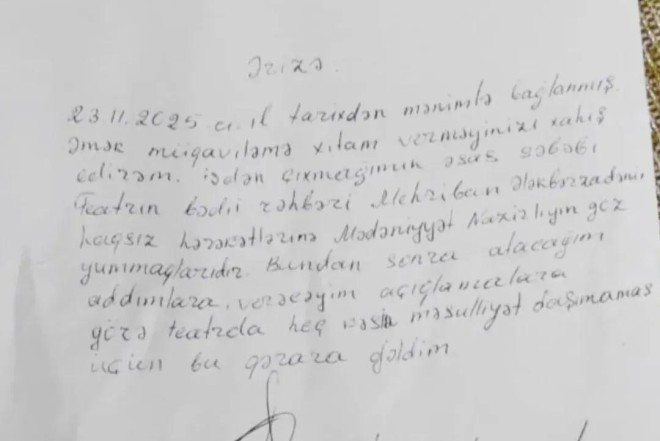 Ərizə.
23.11.2025 ci il tarixdən mənimlə bağlanmış
əmək müqaviləmə xitam verməyinizi xahiş
edirəm. İşdən çıxmağımın əsas səbəbi
Teatrın bədii rəhbəri Mehriban Ələkbərzadənin
haqsız hərəkətlərinə Mədəniyyət Nazirliyin göz
yummaqlarıdır. Bundan sonra atacağım
addımlara, verəcəyim açıqlamalara
görə teatrda heç kəsin məsulliyət daşımaması
üçün bu qərara gəldim